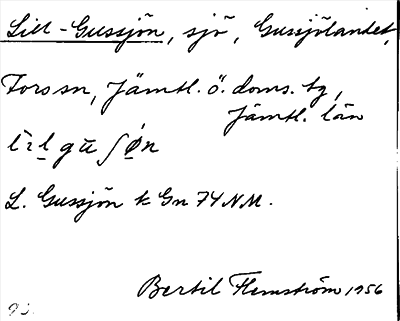 Lill-Gussjön, sjö, Gussjölandet,
Fors sn, Jämtl. ö. doms. tg,
Jämtl. län
L. Gussjön k Gn 74 NM.
Bertil Flemström 1956